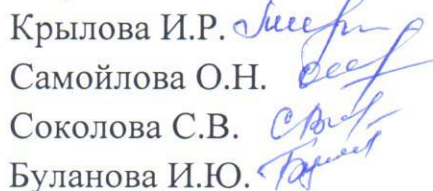 Крылова И.Р.
Самойлова О.Н.
Соколова С.В.
Буланова И.Ю.